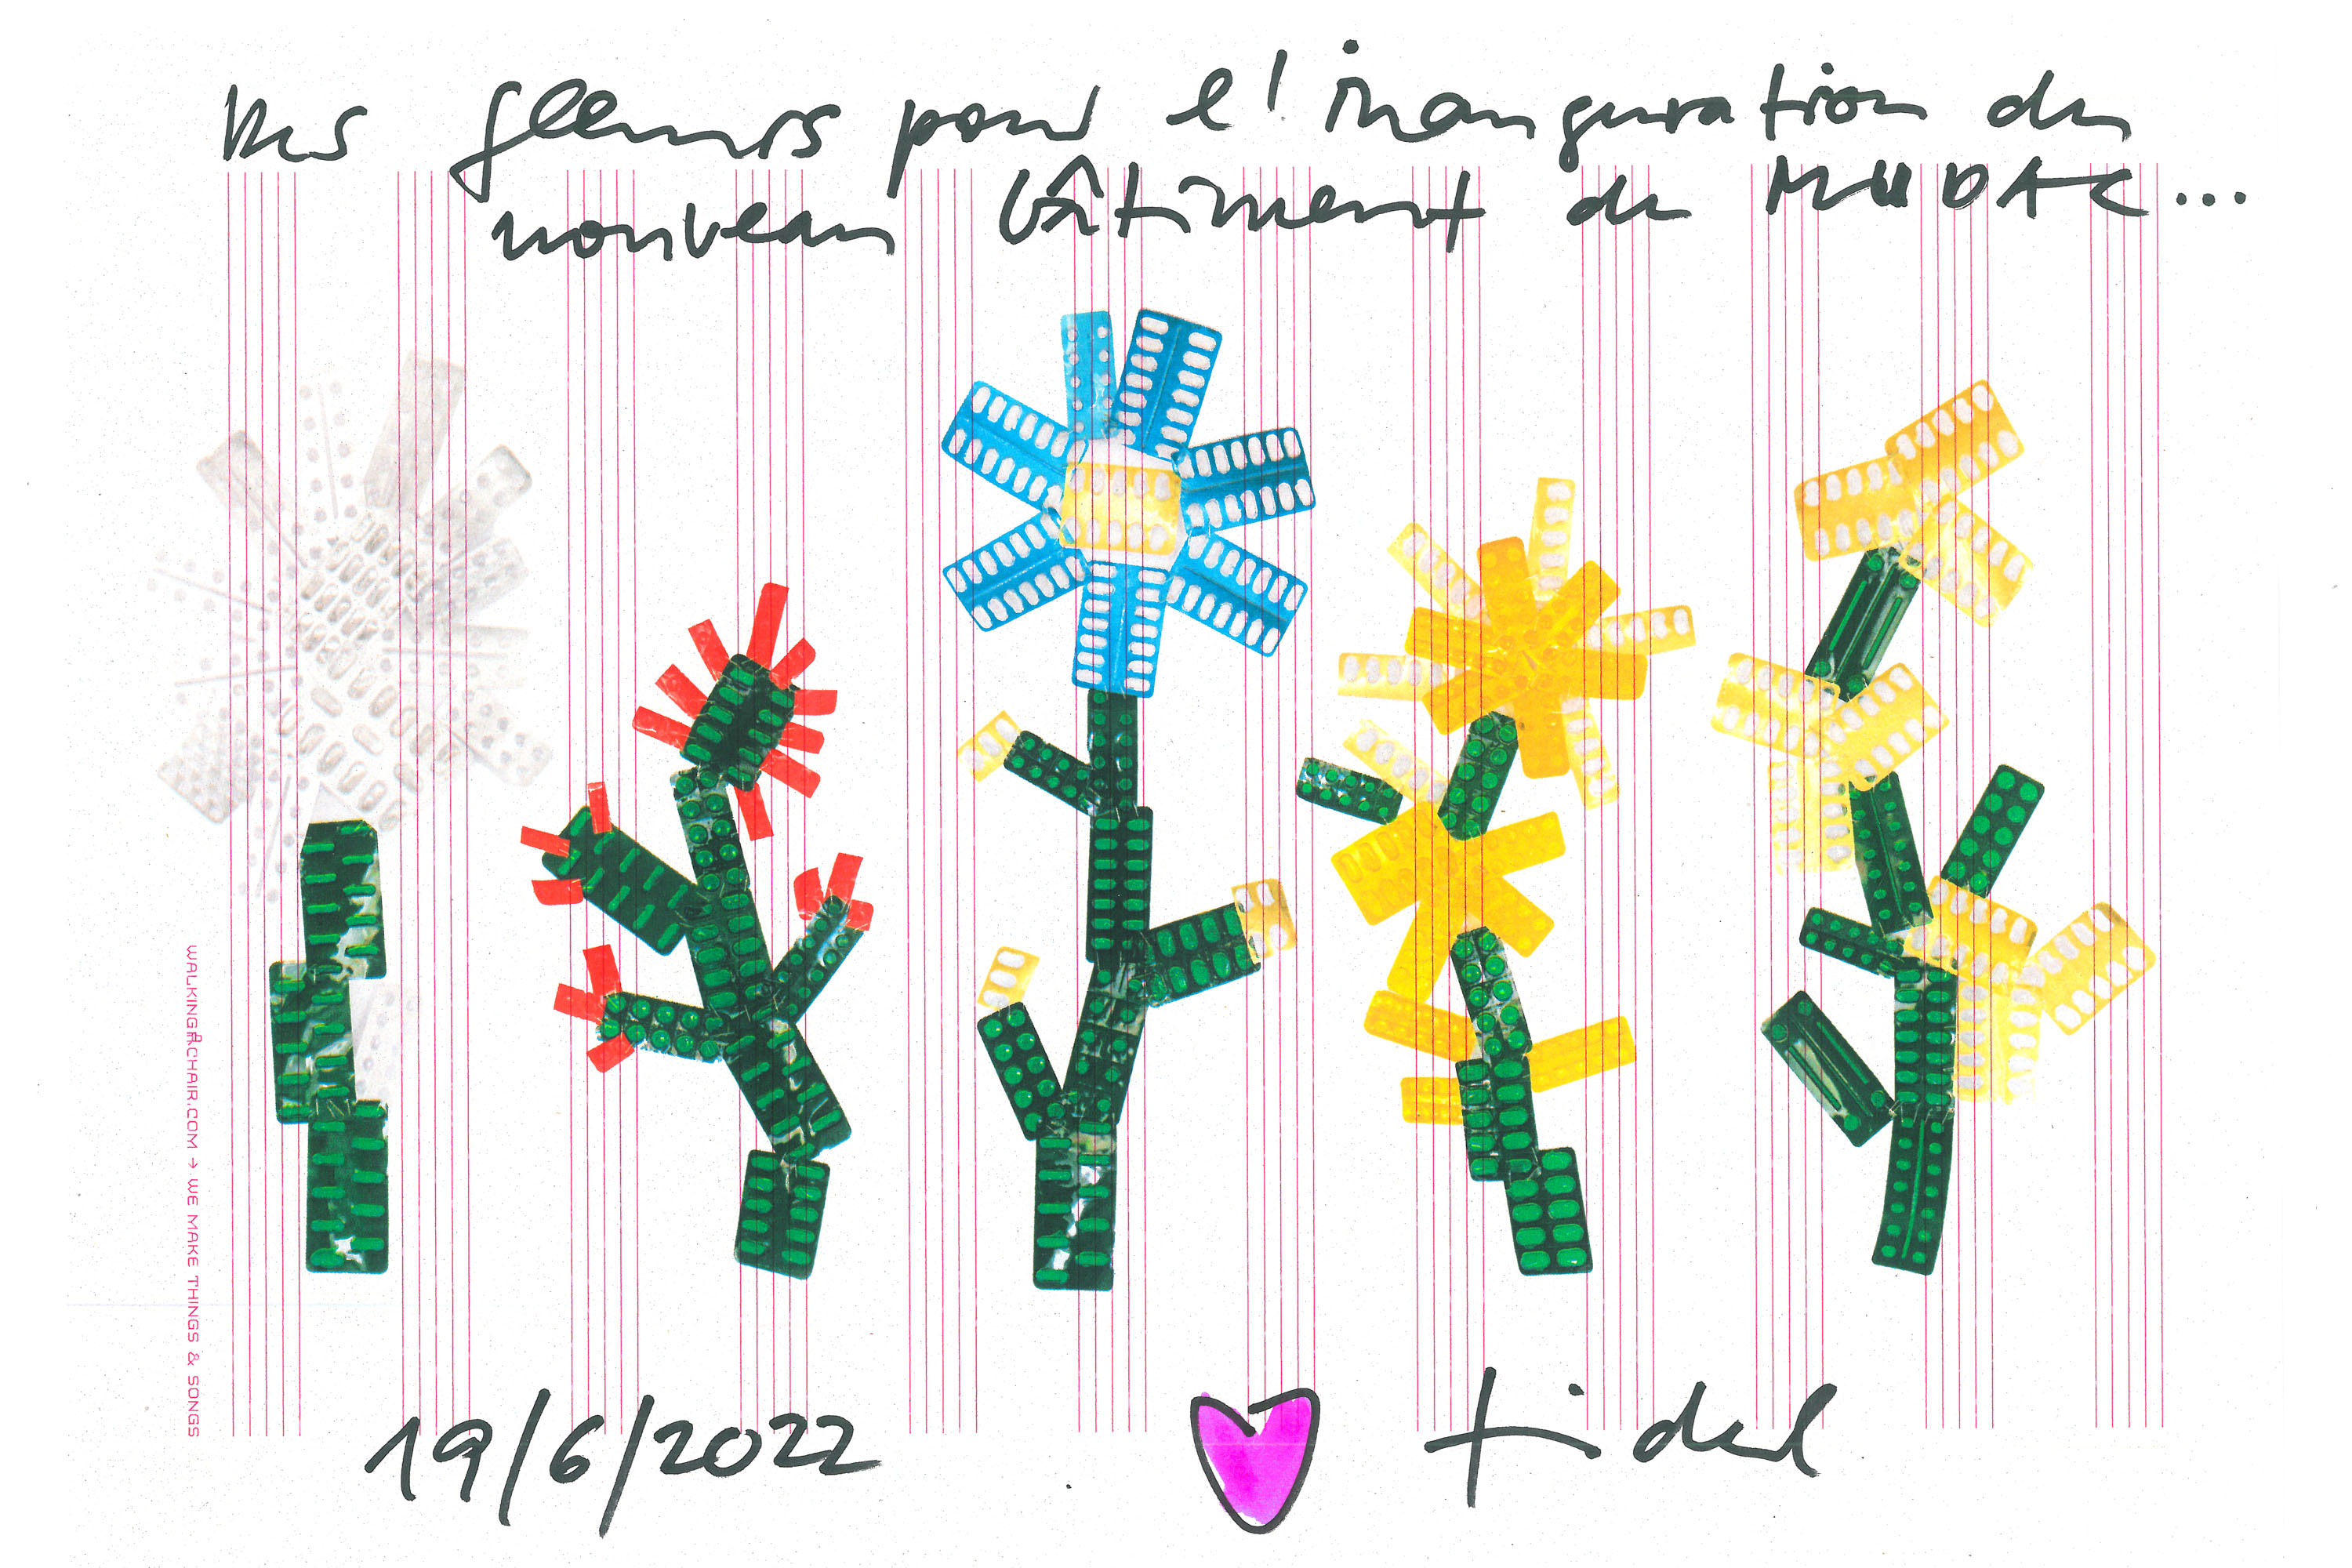 Des fleurs pour l'inauguration du
nouveau bâtiment du MUDAC...
WALKINGCHAIR.COM → WE MAKE THINGS & SONGS
19/6/2022
fidel